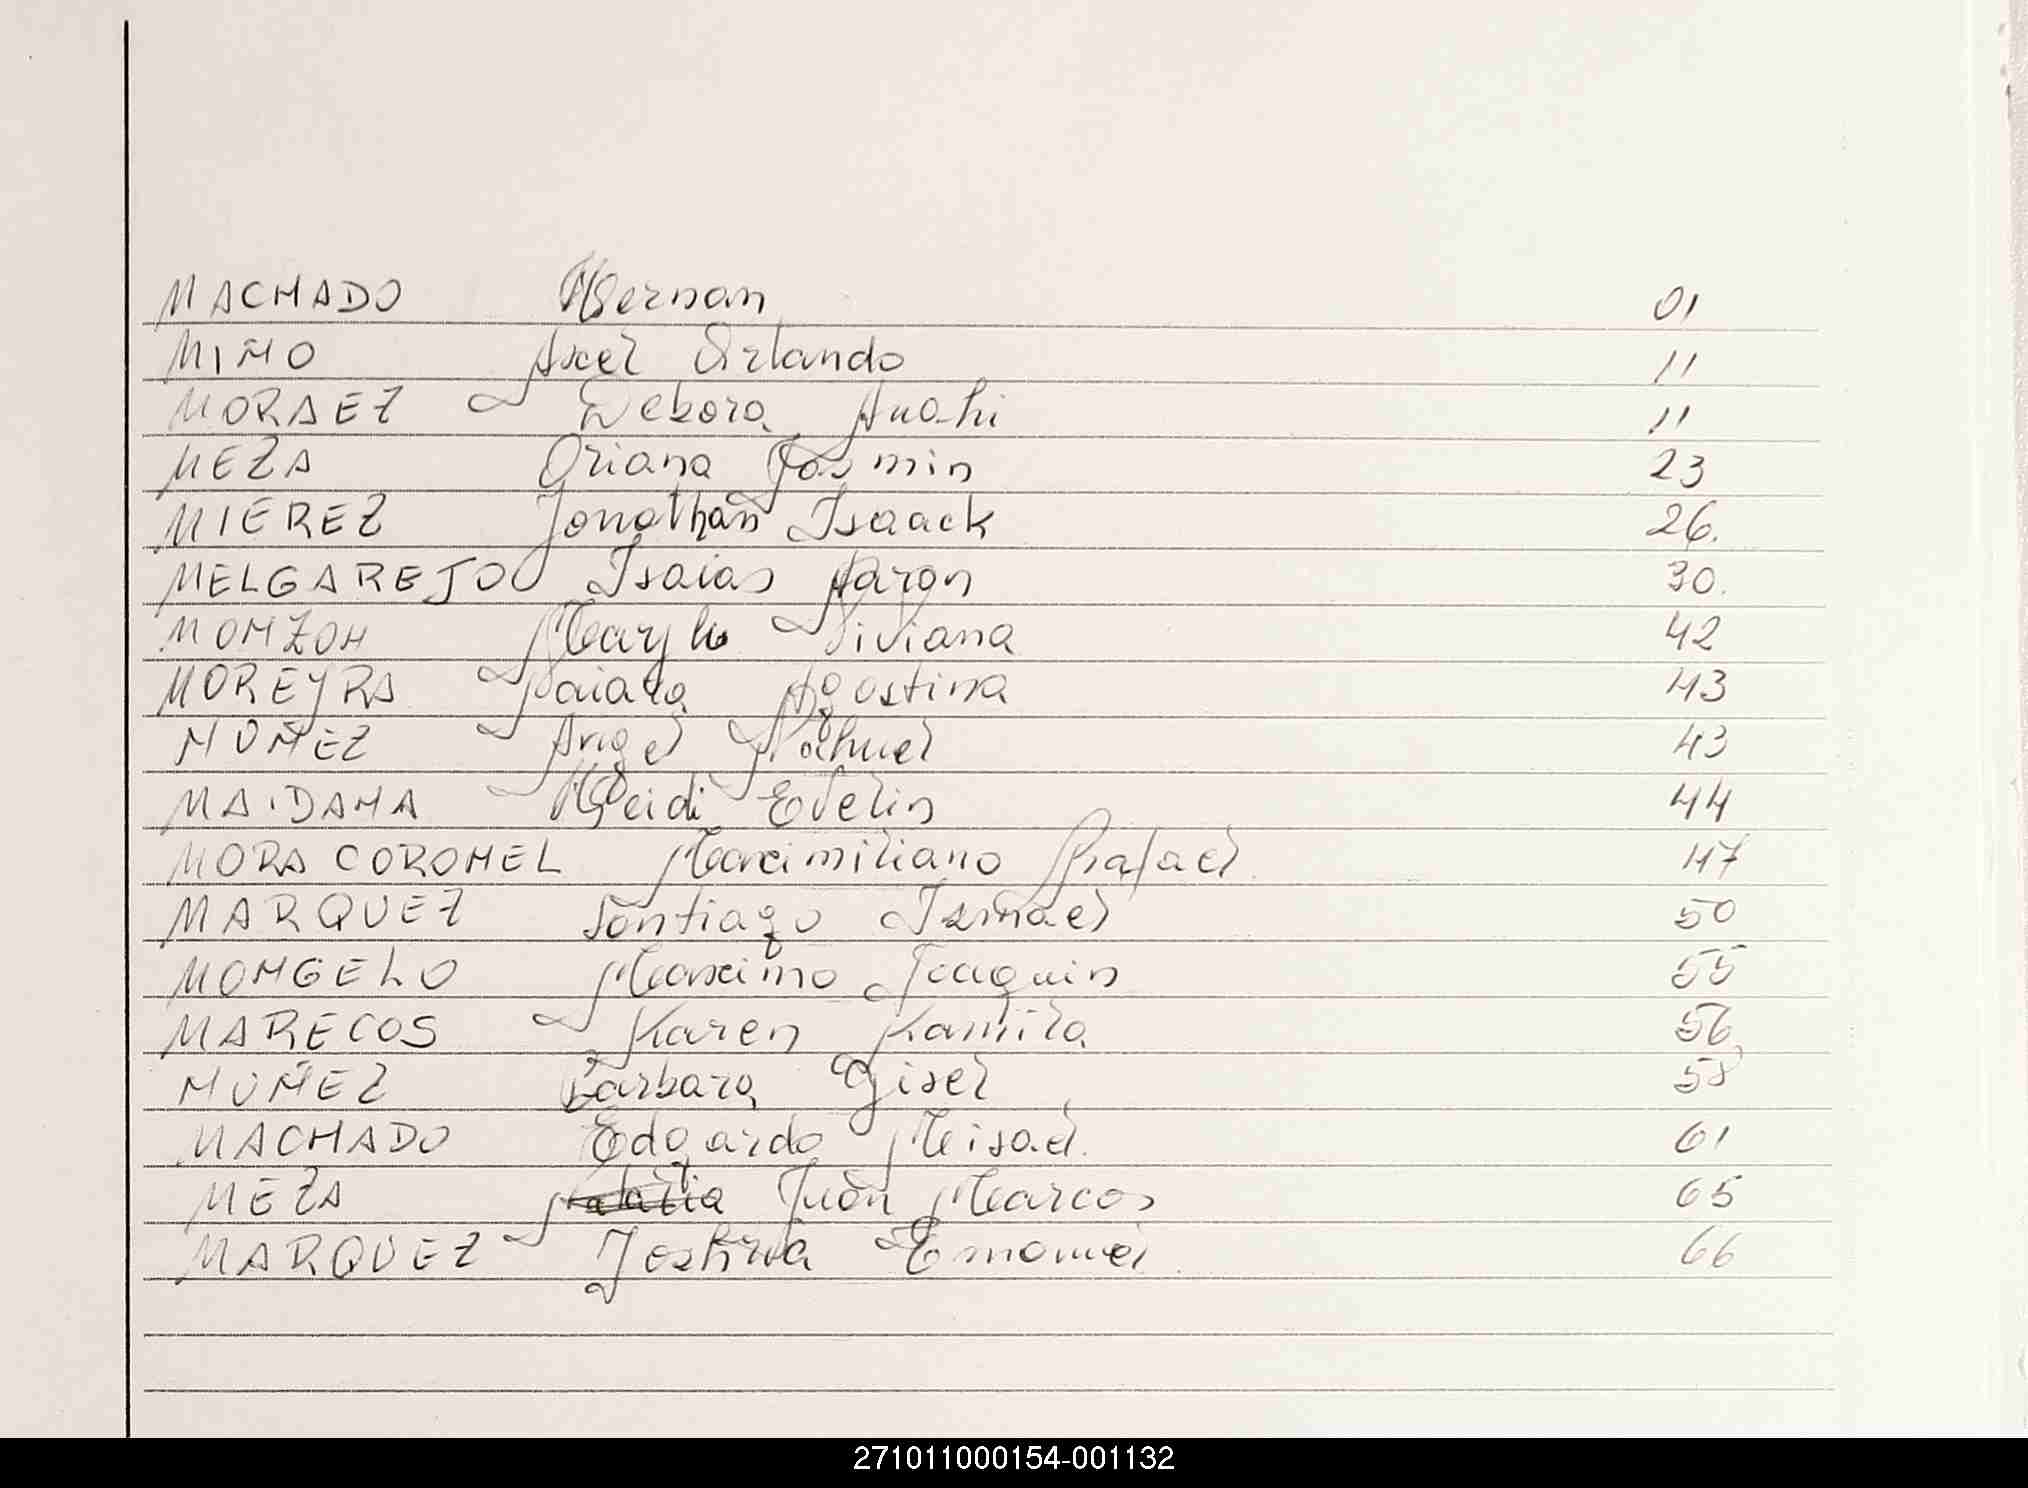 MACHADO Hernan 01
MIÑO Axel Orlando 11
MORAEZ Debora Anahi 11
MEZA Oriana Jasmin 23
MIEREZ Jonathan Isaack 26.
MELGAREJO Isaias Aaron 30.
MONZON Viviana 42
MOREYRA Naiara Agostina 43
MUÑEZ Angel Nahuel 43
MAIDANA Heidi Evelin 44
MORA CORONEL Maximiliano Rafael 47
MARQUEZ Santiago Ismael 50
MONGELO Maximo Joaquin 55
MARECOS Karen Kamila 56
MUÑEZ Barbara Gisel 58
MACHADO Edgardo Misael 61
MEZA Juan Marcos 65
MARQUEZ Joshua Emanuel 66
271011000154-001132